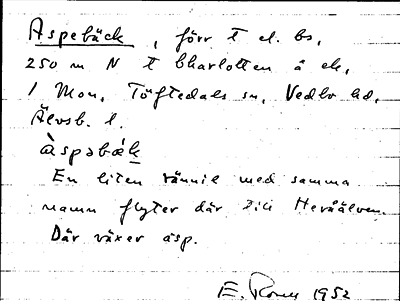 Aspebäck, förr t el. bs,
250 m N t Charlotten å ek,
1 Mon, Töftedals sn, Vedbo hd,
Älvsb. l.
àspəbä́k
En liten rännil med samma
namn flyter där till Heråälven.
Där växer asp.
E. 1952